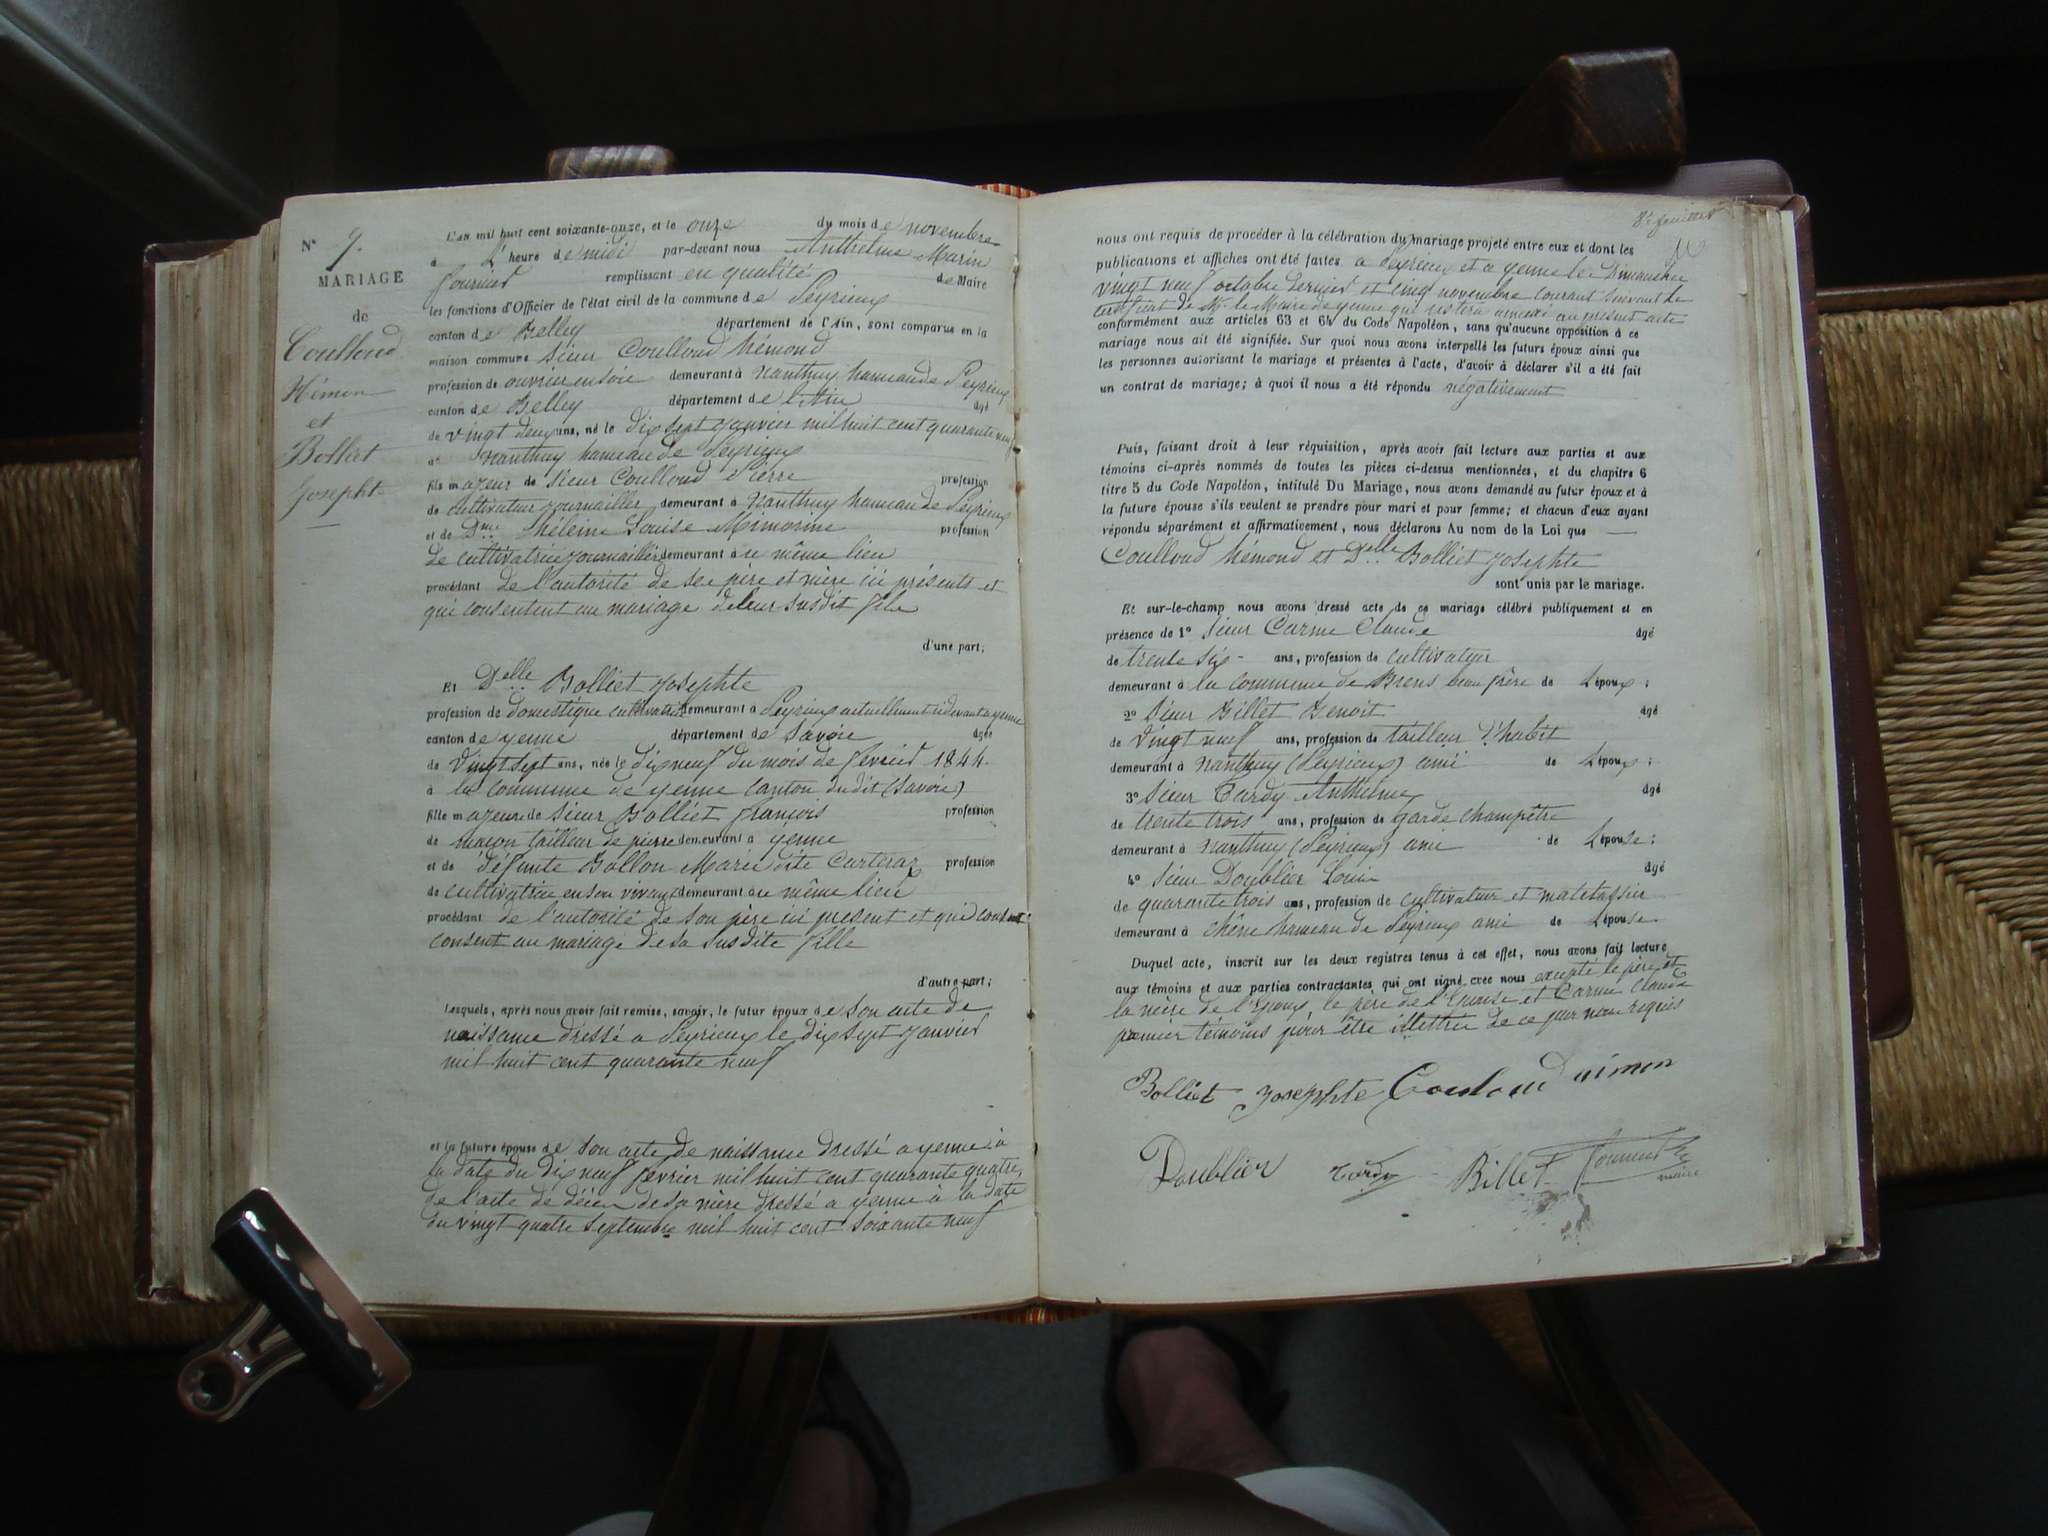 N° 7.
MARIAGE
de
Coulloud
Némon
et
Bolliet
Josephte
L'an mil huit cent soixante-onze, et le onze du mois de novembre
à l' heure de midi par-devant nous Anthelme Marin
fournier remplissant en qualité de Maire
les fonctions d'Officier de l'état civil de la commune de Peyrieux
canton de Belley département de l'Ain, sont comparus en la
maison commune sieur Coulloud Némond
profession de ouvrier en soie demeurant à Nanthuy hameau de Peyrieux
canton de Belley département de l'Ain âgé
de vingt deux ans, né le dix sept janvier mil huit cent quarante neuf
à Nanthuy hameau de Peyrieux
fils majeur de sieur Coulloud Pierre profession
de cultivateur journailler demeurant à Nanthuy hameau de Peyrieux
et de Dme Louise Mimorine profession
de cultivatrice journaillère demeurant à ce même lieu
procédant de l'autorité de ses père et mère ici présents et
qui consentent au mariage de leur susdit fils
d'une part;
Et Delle Bolliet Josephte
profession de domestique cultivatrice demeurant à Peyrieux actuellement ci devant a yenne
canton de yenne département de Savoie âgée
de vingt sept ans, née le dix neuf du mois de février 1844
à la commune de yenne canton dudit (Savoie)
fille majeure de sieur Bolliet françois profession
de maçon tailleur de pierre demeurant à yenne
et de défunte Bollon Marie dite Curtéraz profession
de cultivatrice en son vivant demeurant à ce même lieu
procédant de l'autorité de son père ici present et qui consent
consent au mariage de sa susdite fille
d'autre part;
Lesquels, après nous avoir fait remise, savoir, le futur époux de son acte de
naissance dressé a Peyrieux le dix sept janvier
mil huit cent quarante neuf
et la future épouse de son acte de naissance dressé a yenne à
la date du dix neuf février mil huit cent quarante quatre,
de l'acte de décès de sa mère dressé a yenne à la date
du vingt quatre septembre mil huit cent soixante neuf
8e feuillet
nous ont requis de procéder à la célébration du mariage projeté entre eux et dont les
publications et affiches ont été faites a Peyrieux et a yenne les Dimanches
vingt neuf octobre dernier et cinq novembre courant suivant le
certificat de Mr le Maire de yenne qui restera annexé au présent acte
conformément aux articles 63 et 64 du Code Napoléon, sans qu'aucune opposition à ce
mariage nous ait été signifiée. Sur quoi nous avons interpellé les futurs époux ainsi que
les personnes autorisant le mariage et présentes à l'acte, d'avoir à déclarer s'il a été fait
un contrat de mariage; à quoi il nous a été répondu négativement
Puis, faisant droit à leur réquisition, après avoir fait lecture aux parties et aux
témoins ci-après nommés de toutes les pièces ci-dessus mentionnées, et du chapitre 6
titre 5 du Code Napoléon, intitulé Du Mariage, nous avons demandé au futur époux et à
la future épouse s'ils veulent se prendre pour mari et pour femme; et chacun d'eux ayant
répondu séparément et affirmativement, nous déclarons Au nom de la Loi que
Coulloud Némond et Delle Bolliet Josephte
sont unis par le mariage.
Et sur-le-champ nous avons dressé acte de ce mariage célébré publiquement et en
présence de 1° sieur Carme Claude âgé
de trente six ans, profession de cultivateur
demeurant à la commune de Brens beau frère de l'époux;
2° sieur Billet Benoit âgé
de vingt neuf ans, profession de tailleur d'habit
demeurant à Nanthuy (Peyrieux) ami de l'époux;
3° sieur Tardy Anthelme âgé
de trente trois ans, profession de garde champêtre
demeurant à Nanthuy (Peyrieux) ami de l'épouse;
4° sieur Doublier Louis âgé
de quarante trois ans, profession de cultivateur et matelassier
demeurant à chêne hameau de Peyrieux ami de l'épouse
Duquel acte, inscrit sur les deux registres tenus à cet effet, nous avons fait lecture
aux témoins et aux parties contractantes qui ont signé avec nous excepté le père et
la mère de l'Epoux, le père de l'Epouse et Carme Claude
premier témoins pour être illettrés de ce par nous requis
Bolliet Josephte Couloud nimon
Doublier Tardy Billet fournier
maire